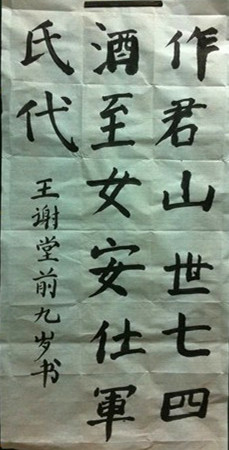 作君山世七四
酒至女安仕軍
氏代
王谢堂前九岁书